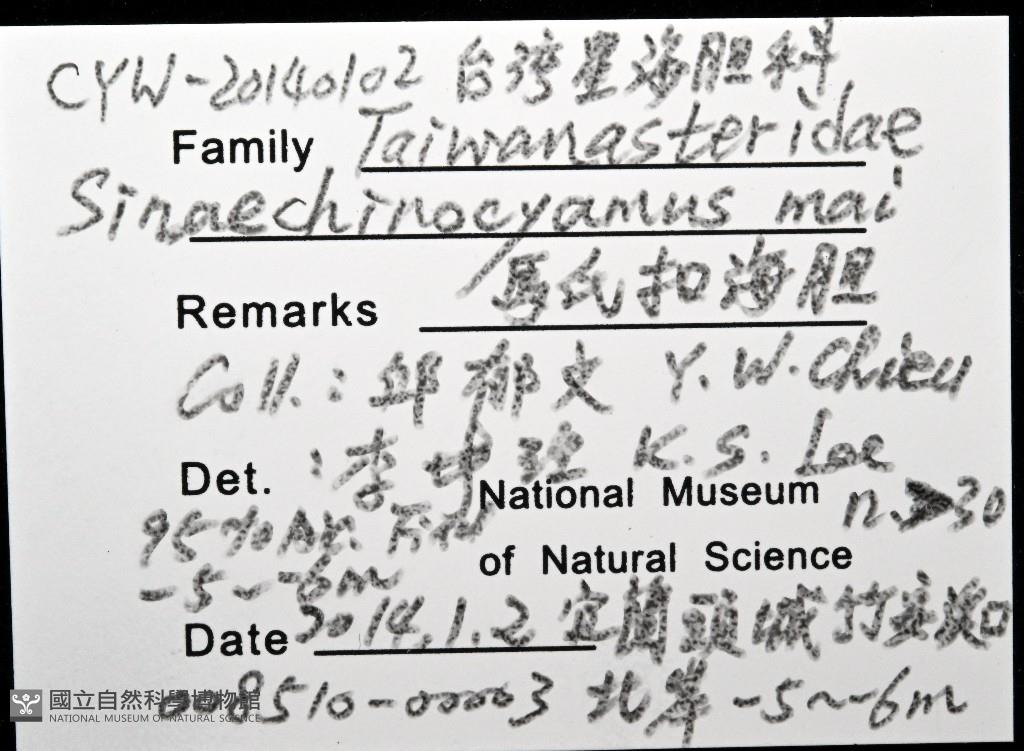 CYW-20140102 台湾星海胆科
Family Taiwanasteridae
Sinaechinocyamus mai
馬氏扣海胆
Remarks
Coll.: 邱郁文 Y. W. Chieu
Det. : 李坤瑄 K. S. Lee
National Museum n>30
95% Alc.
of Natural Science
-5~-6m
Date 2014.1.2 宜蘭頭城竹安溪口
8510-00003 北岸 -5~-6m
國立自然科學博物館
NATIONAL MUSEUM OF NATURAL SCIENCE